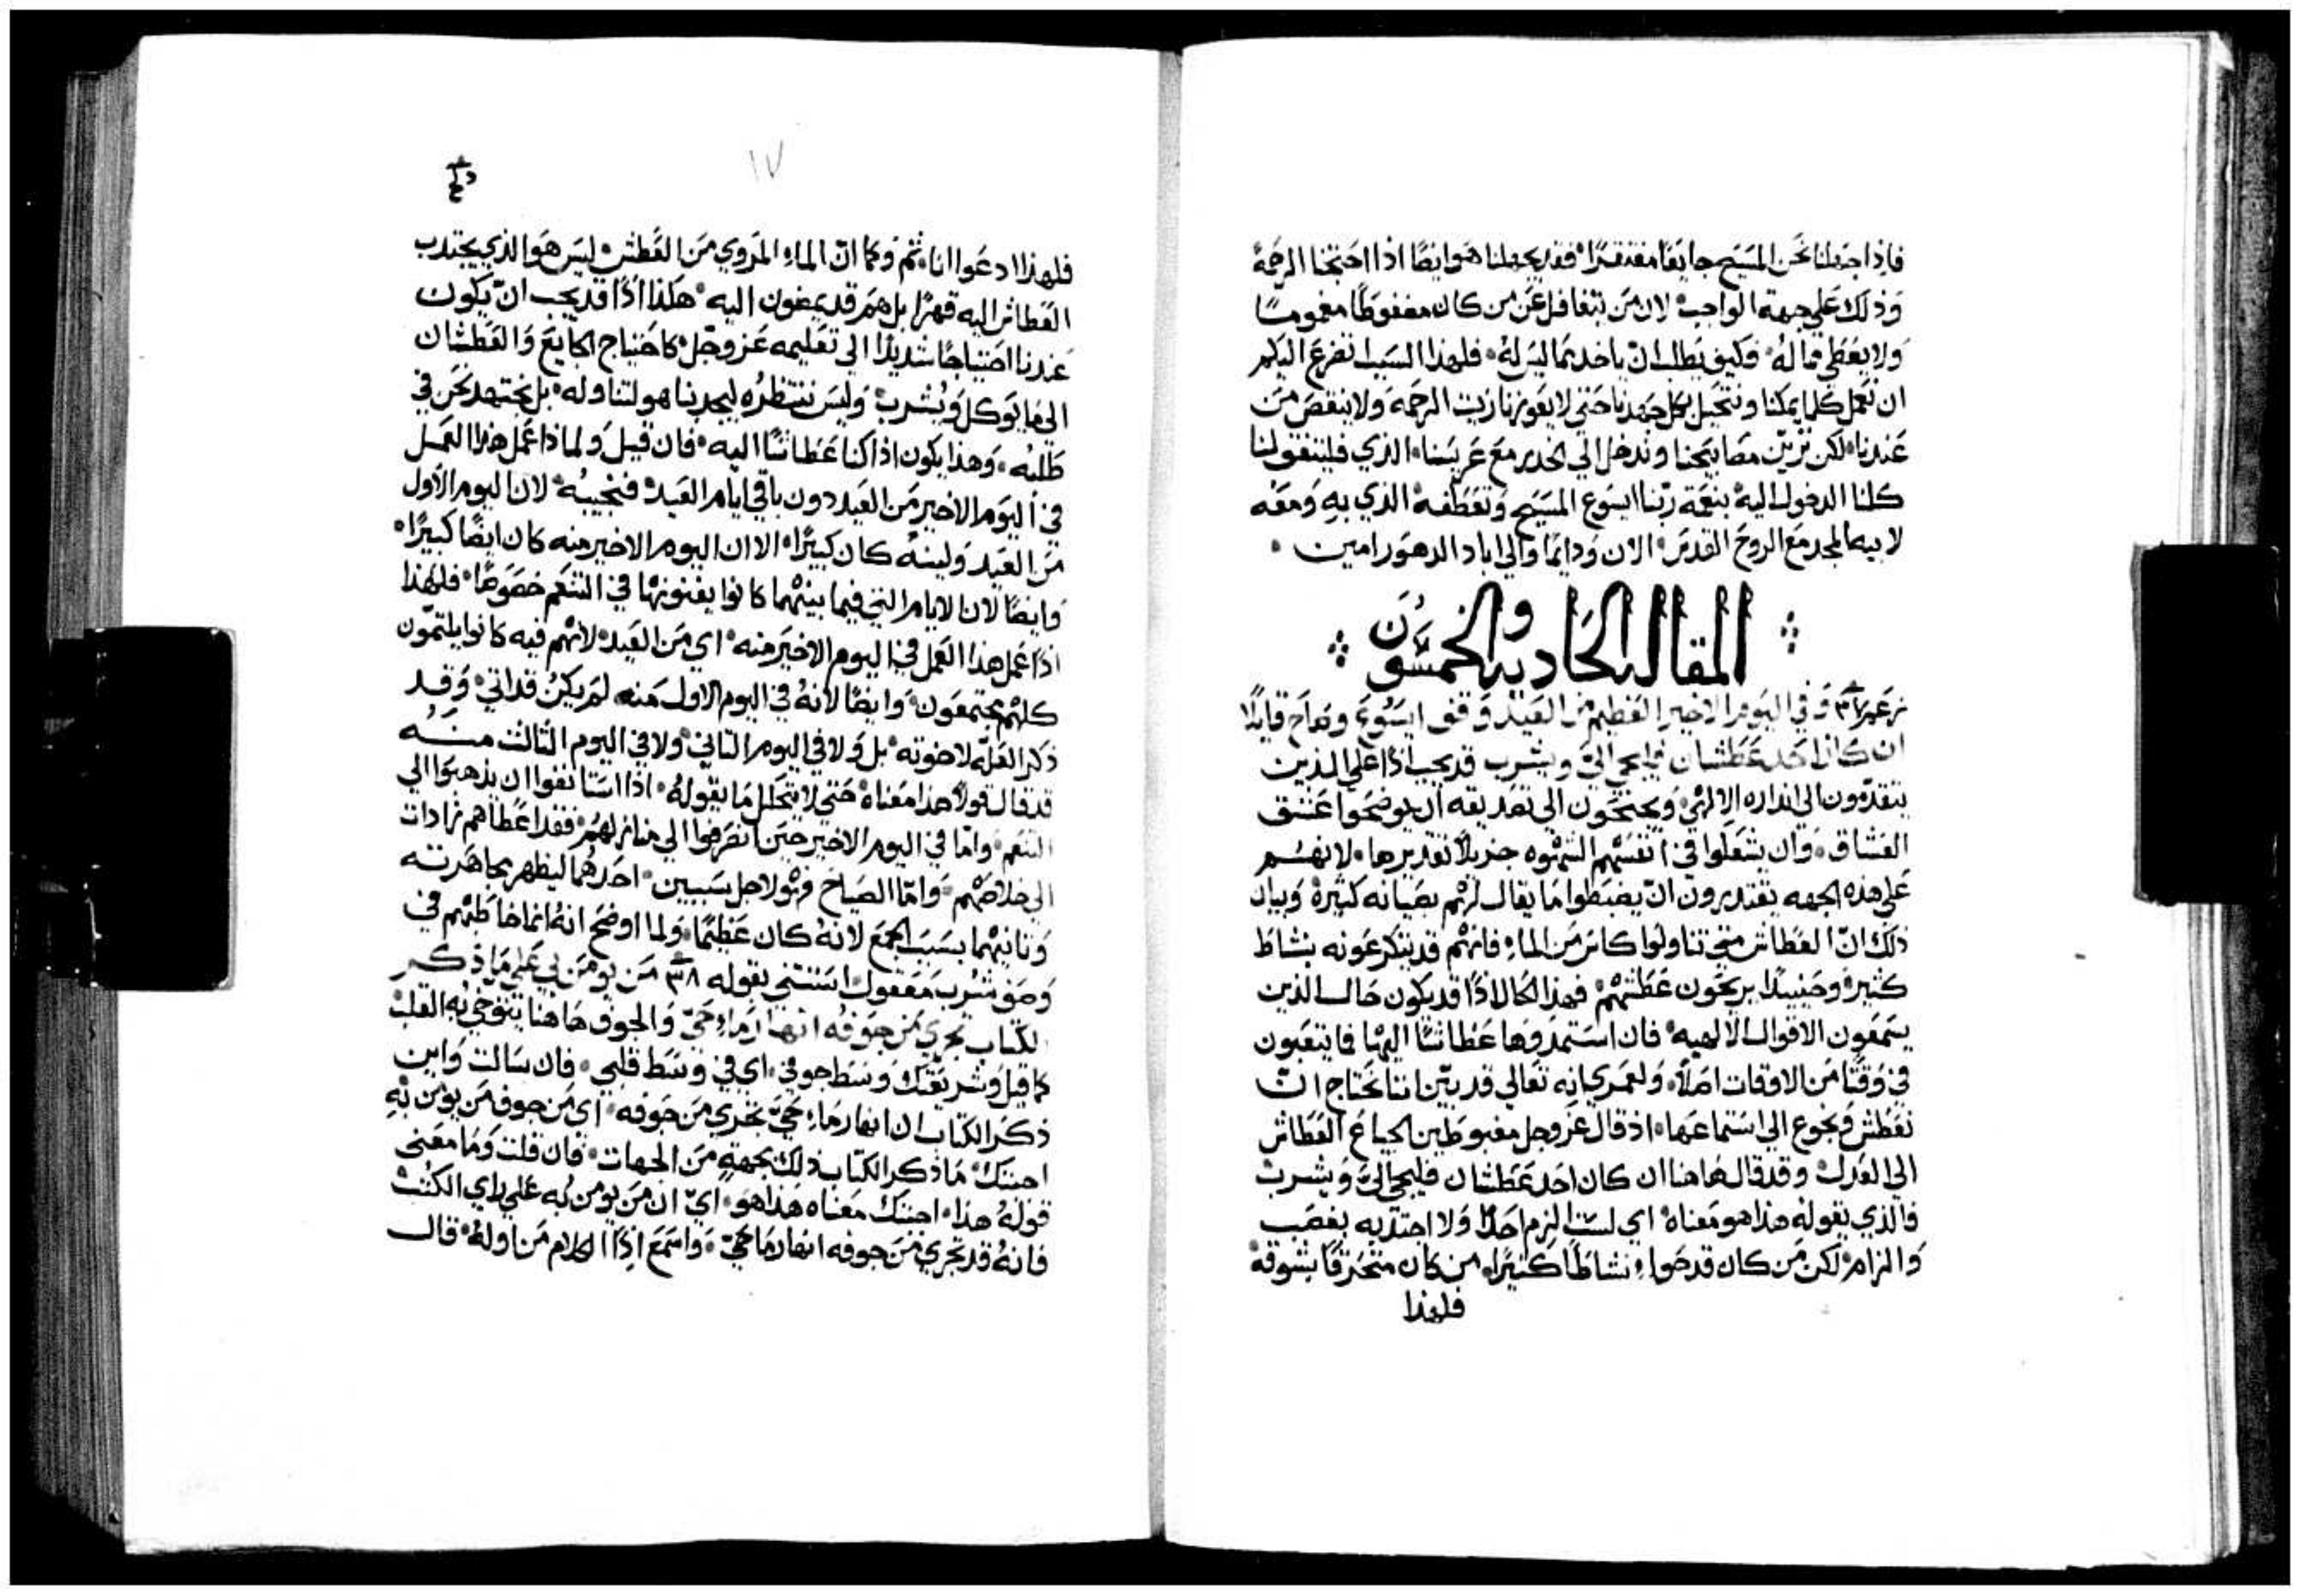 فاذا جعلنا نحن المسيح جايعًا مفتقرًا فقد يجعلنا هو ايضًا اذا احتجنا الرحمة
وذلك علي جهة الواجب لان من يتغافل عن من كان مضغوطًا مغمومًا
ولا يعطي ما له فكيف يطلب ان ياخد ما ليس له فلهذا السبب نضرع اليكم
ان نعمل كلما يمكنا ونتحيل بكل جهدنا حتي لا يعوزنا زيت الرحمه ولا ينقص من
عندنا لكن نزين مصابيحنا وندخل الي الخدر مع عريسنا الذي فليتفق لنا
كلنا الدخول اليه بنعمة ربنا ايسوع المسيح وتعطفه الذي به ومعه
لابيه المجد مع الروح القدس الان ودايمًا والي اباد الدهور امين
المقاله الحاديه والخمسون
وفي اليوم الاخير العظيم من العيد وقف ايسوع وصاح قايلًا
ان كان احد عطشان فليجي اليّ ويشرب قد يجب اذًا علي الذين
يتقدمون الي انذاره الالهي ويجنحون الي تصديقه ان يوضحوا عشق
العشاق وان يشعلوا في انفسهم الشهوه جزيلًا تقديرها لانهم
علي هذه الجهه يقتدرون ان يضبطوا ما يقال لهم بصيانه كثيرة وبيان
ذلك ان العطاش متي تناولوا كاس من الماء فانهم قد يتكرعونه بنشاط
كثير وحينيدًا يريحون عطشهم فهذا الحال اذًا قد يكون حال الذين
يسمعون الاقوال الالهيه فان استمدوها عطاشًا اليها فما يتعبون
في وقتًا من الاوقات اصلًا ولعمري انه تعالي قد بيّن اننا نحتاج ان
نعطش ونجوع الي استماعها اذ قال عز وجل مغبوطين الجياع العطاش
الي العدل وقد قال هاهنا ان كان احد عطشان فليجي اليّ ويشرب
فالذي يقوله هذا هو معناه اي لست الزم احدًا ولا اجتذبه بغصب
والزام لكن من كان قد حواء نشاطًا كثيرًا من كان متحرقًا بشوقه
فلهذا
١٧
فلهذا ادعوا انا ثم وكما انّ الماء المروي من العطش ليس هو الذي يجتذب
العطاش اليه قهرًا بل هم قد يمضون اليه هكذا اذًا قد يجب ان يكون
عندنا احتياجًا شديدًا الي تعليمه عز وجل كاحتياج الجايع والعطشان
الي ما يوكل ويشرب وليس ننتظره ليجدبنا هو لتناوله بل نجتهد نحن في
طلبه وهذا يكون اذا كنا عطاشًا اليه فان قيل ولماذا عمل هذا العمل
في اليوم الاخير من العيد دون باقي ايام العيد فنجيبه لان اليوم الاول
من العيد ولينه كان كبيرًا الا ان اليوم الاخير منه كان ايضًا كبيرًا
وايضًا لان الايام التي فيما بينهما كانوا يفنونها في التنعم خصوصًا فلهذا
اذًا عمل هذا العمل في اليوم الاخير منه اي من العيد لانهم فيه كانوا يلتمون
كلهم مجتمعون وايضًا لانه في اليوم الاول منه لم يكن قد اتي وقد
ذكر العله لاخوته بل ولا في اليوم الثاني ولا في اليوم الثالث منه
قد قال قولًا هذا معناه حتي لا يتحلل ما يقوله اذا استانفوا ان يذهبوا الي
التنعم واما في اليوم الاخير حين انصرفوا الي منازلهم فقد اعطاهم زادات
الي خلاصهم واما الصياح فهو لاجل سببين احدهما ليظهر مجاهرته
وثانيهما بسبب الجمع لانه كان عظيمًا ولما اوضح انه انما خاطبهم في
وصف شرب معقول استثني بقوله ٣٨ من يومن بي علي ما ذكر
الكتاب تجري من جوفه انهار ماء حيّ والجوف هاهنا يتوخي به القلب
كما قيل وشريعتك وسط جوفي اي في وسط قلبي فان سالت واين
ذكر الكتاب ان انهار ماء حيّ تجري من جوفه اي من جوف من يؤمن به
اجبتك ما ذكر الكتاب ذلك بجهةٍ من الجهات فان قلت وما معني
قوله هذا اجبتك معناه هذا هو ايّ ان من يومن به علي راي الكتب
فانه قد تجري من جوفه انهار ما حيّ واسمع اذًا الكلام من اوله قال